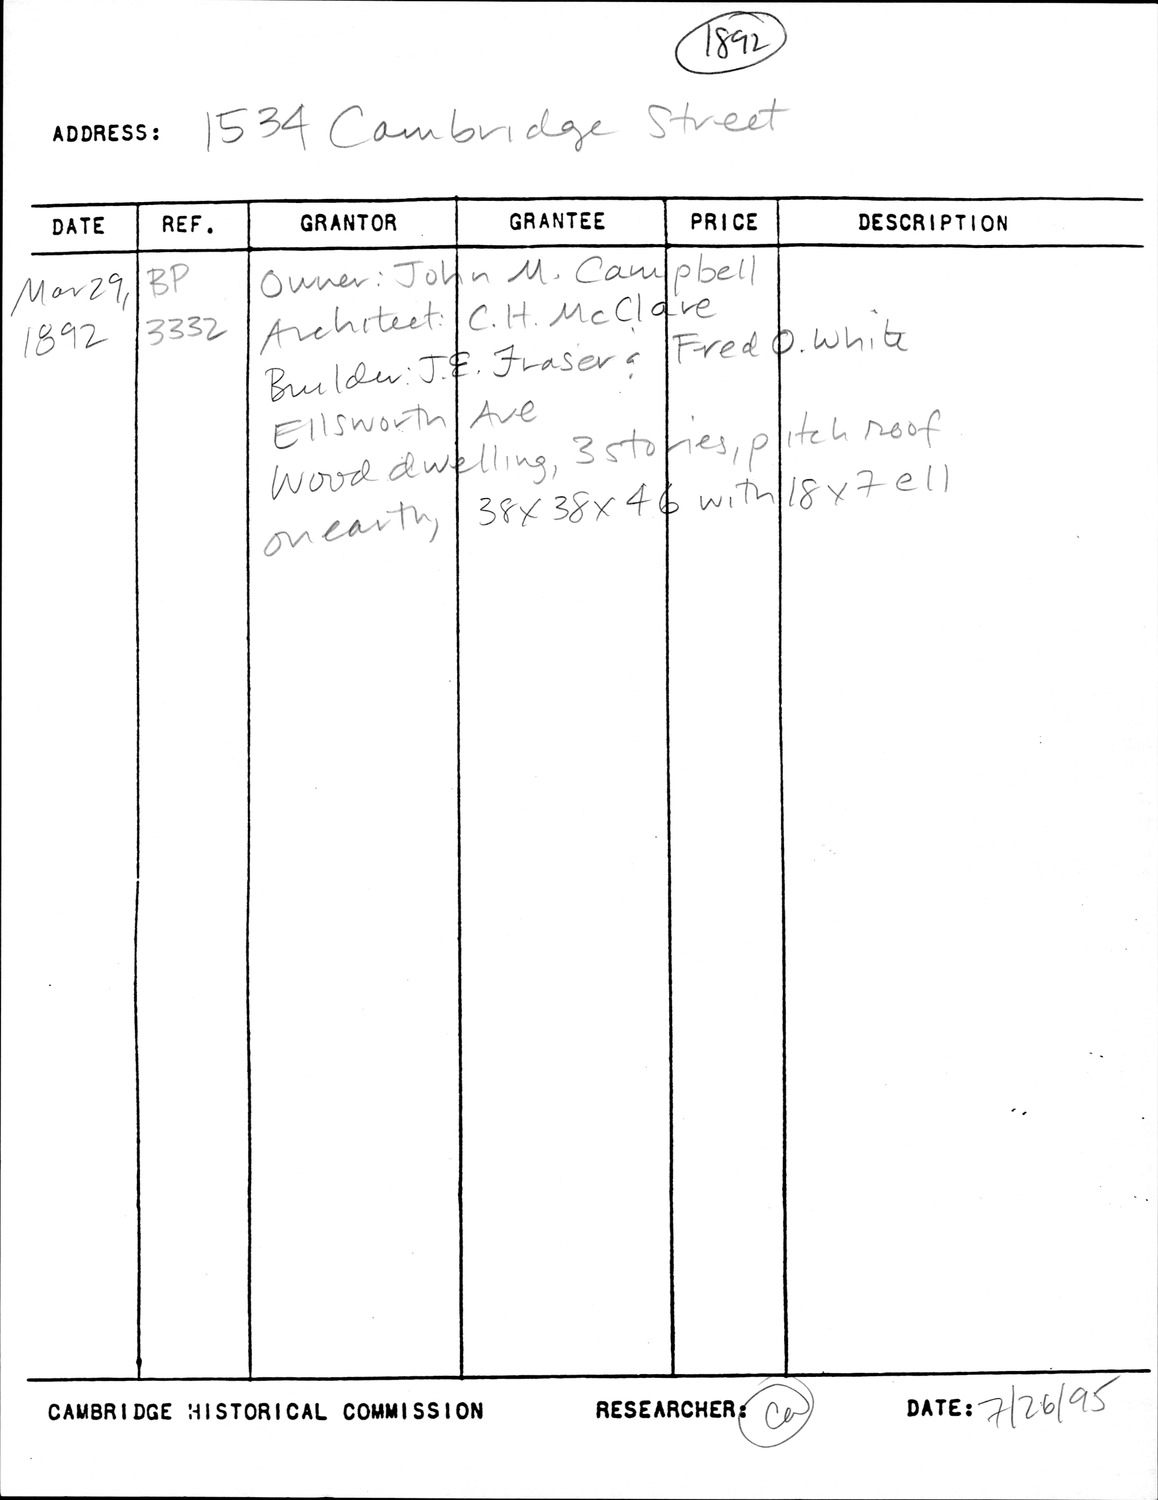 1892
ADDRESS: 1534 Cambridge Street
DATE REF. GRANTOR GRANTEE PRICE DESCRIPTION
Mar 29, BP Owner: John M. Campbell
1892 3332 Architect: C.H. McClare
Builder: J.E. Fraser & Fred O. White
Ellsworth Ave
Wood dwelling, 3 stories, pitch roof
on earth, 38x38x46 with 18x7 ell
CAMBRIDGE HISTORICAL COMMISSION RESEARCHER: DATE: 7/26/95